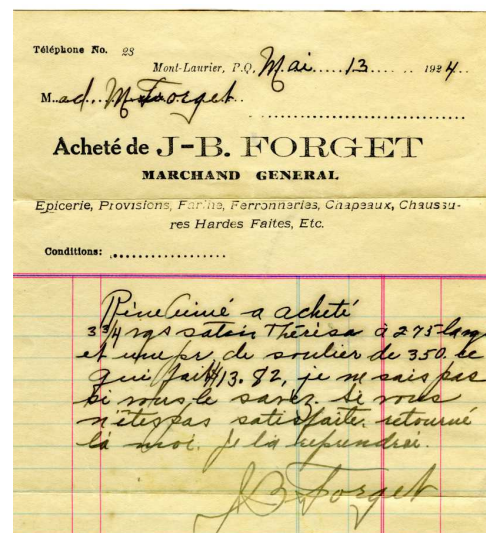 Téléphone No. 23
Mont-Laurier, P.Q, Mai 13 1924
M ad. M Forget
Acheté de J-B. FORGET
MARCHAND GENERAL
Epicerie, Provisions, Farine, Ferronneries, Chapeaux, Chaussu-
res Hardes Faites, Etc.
Conditions:
a acheté
3 3/4 vgs satin Thérisa a 275 larg
et une pr. de soulier de 350. ce
qui fait $13.82, je ne sais pas
si vous le savez. Si vous
n'êtes pas satisfaite. retourné
là moi. je la reprendrai.
J B Forget